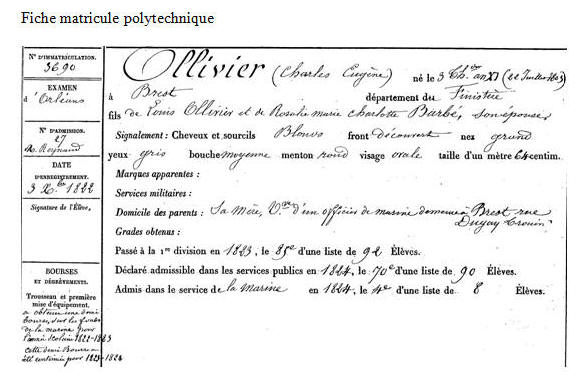 Fiche matricule polytechnique
N° D'IMMATRICULATION.
3690
EXAMEN
d'Orléans
N° D'ADMISSION.
27
M. Reynaud
DATE
D'ENREGISTREMENT.
3 X.bre 1822
Signature de l'Élève,
BOURSES
ET DÉGRÈVEMENTS.
Trousseau et première
mise d'équipement.
a obtenu une demi
bourse, sur les fonds
de la marine pour
l'année scolaire 1822-1823
cette demi Bourse a
été continuée pour 1823-1824
Ollivier (Charles Eugène) né le 3 Th.or an XI (22 Juillet 1803)
à Brest département du Finistère
fils de Louis Ollivier et de Rosalie marie Charlotte Barbé, son épouse
Signalement : Cheveux et sourcils Blonds front découvert nez grand
yeux gris bouche moyenne menton rond visage ovale taille d'un mètre 64 centim.
Marques apparentes :
Services militaires :
Domicile des parents : Sa Mère, V.ve d'un officier de marine demeure à Brest rue
Duguay Trouin
Grades obtenus :
Passé à la 1re division en 1823, le 85e d'une liste de 92 Élèves.
Déclaré admissible dans les services publics en 1824, le 70e d'une liste de 90 Élèves.
Admis dans le service de la Marine en 1824, le 4e d'une liste de 8 Élèves.